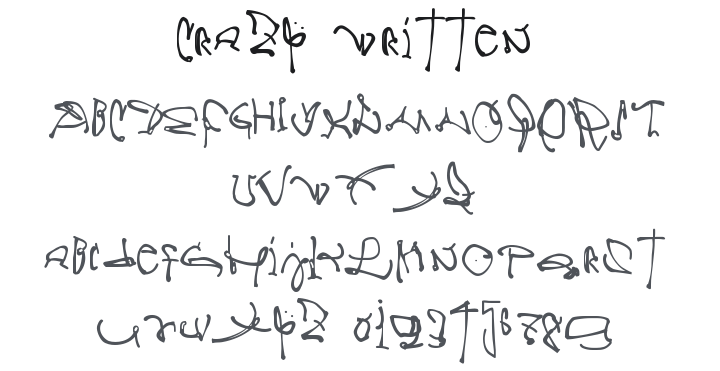 CRAZY WRITTEN
ABCDEFGHIJKLMNOPQRST
UVWXYZ
ABCdefGHijkLMNOPQRST
UVWXYZ 0123456789